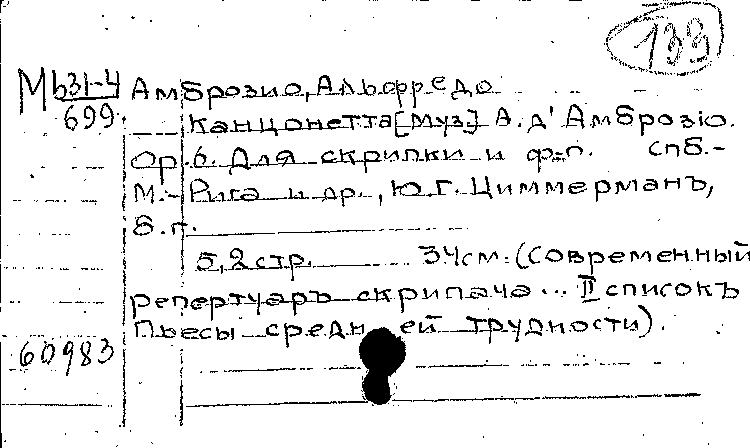 133
Мb31-4 Амброзио, Альфредо
699. Канцонетта [Муз.] А. д' Амброзіо.
Ор. 6. Для скрипки и ф.-п. Спб.-
М.-Рига и др., Ю.Г. Циммерманъ,
б.г.
5,2 стр. 34см. (Современный
репертуаръ скрипача... II списокъ
Пьесы средн ей трудности).
60983